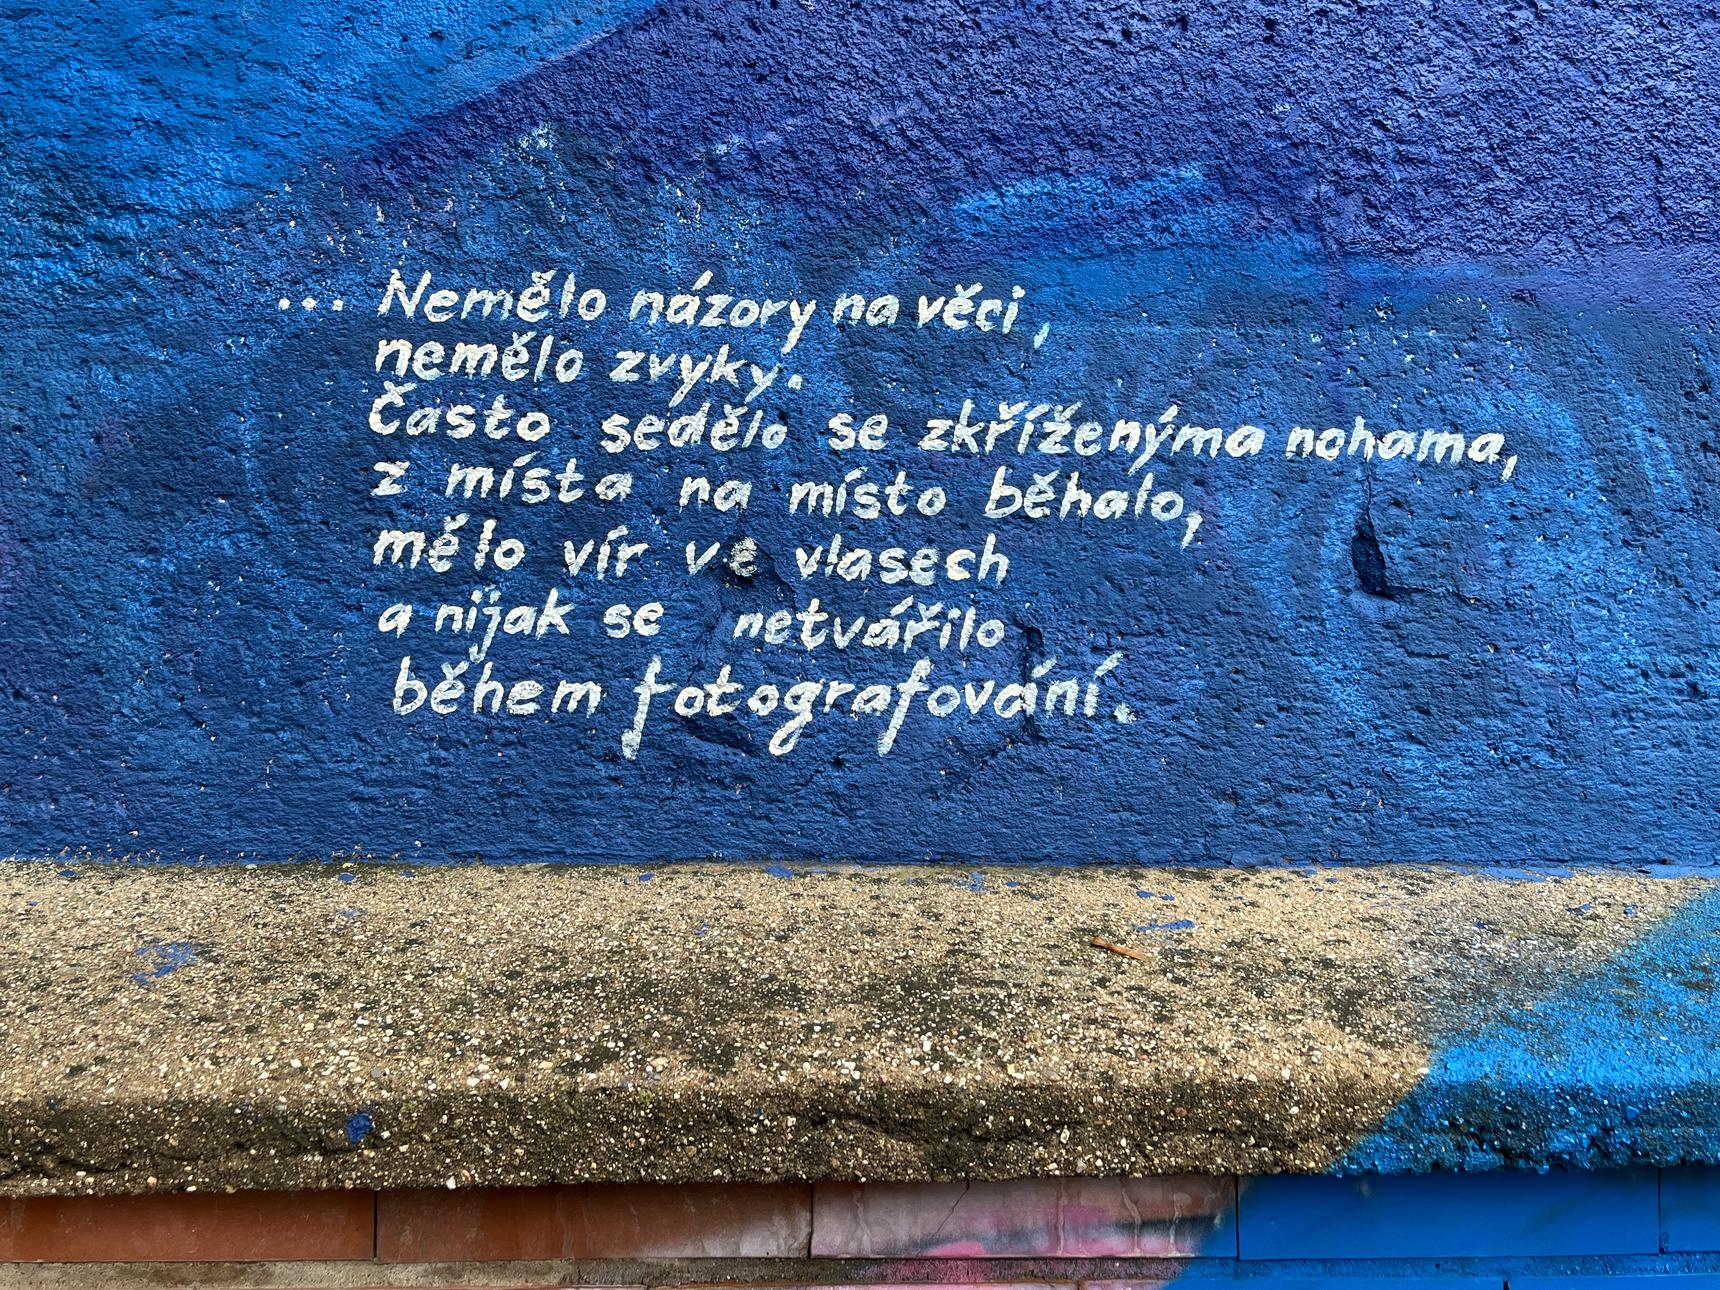 ... Nemělo názory na věci,
nemělo zvyky.
Často sedělo se zkříženýma nohama,
z místa na místo běhalo,
mělo vír ve vlasech
a nijak se netvářilo
během fotografování.